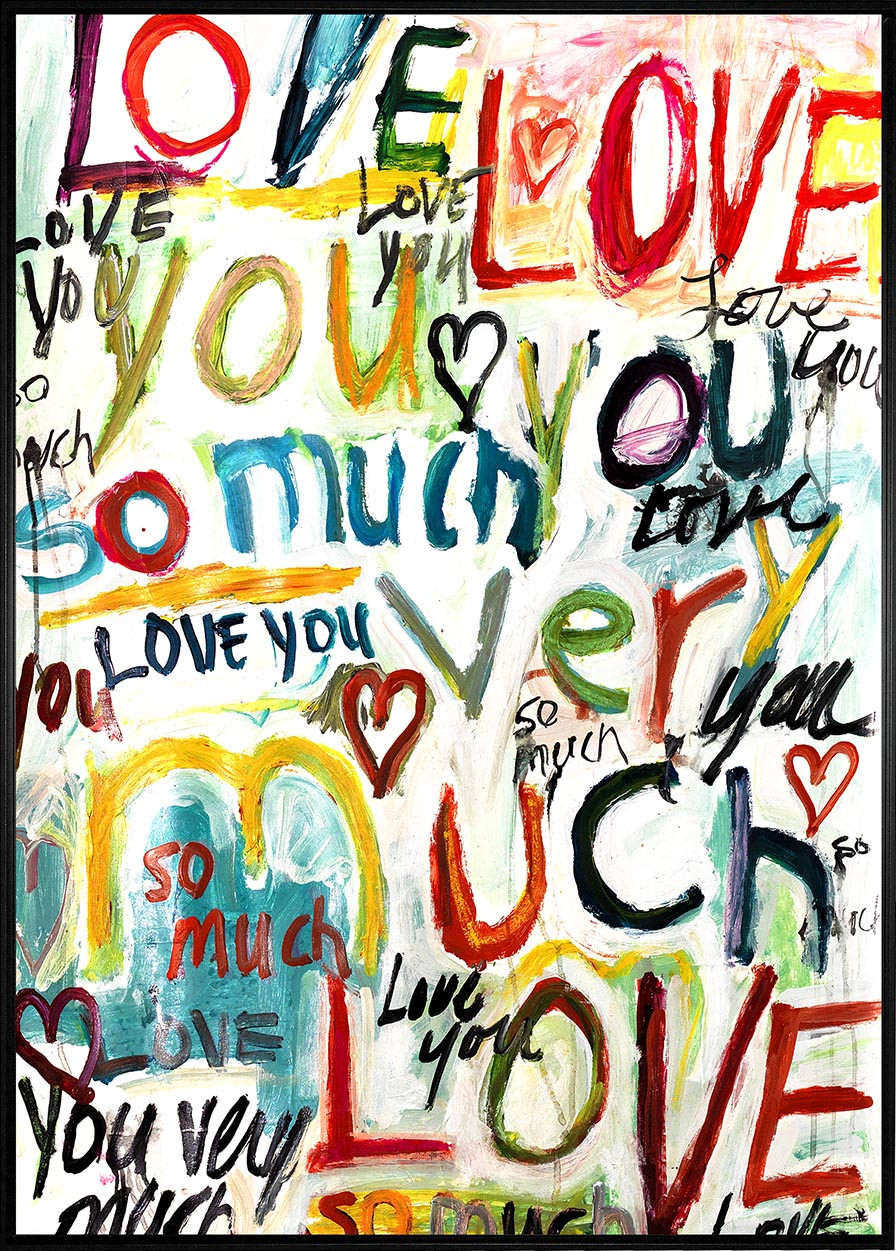 LOVE
LOVE
LOVE
you
LOVE
you
you
Love
you
so
much
you
so much
Love
very
LOVE YOU
you
so
much
you
much
so
much
so
Love
you
LOVE
LOVE
you very
much
so much
LOVE